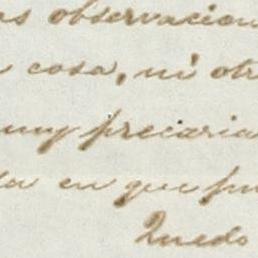 as observacion
cosa, ni otr
muy precaria
da en que pu
Quedo